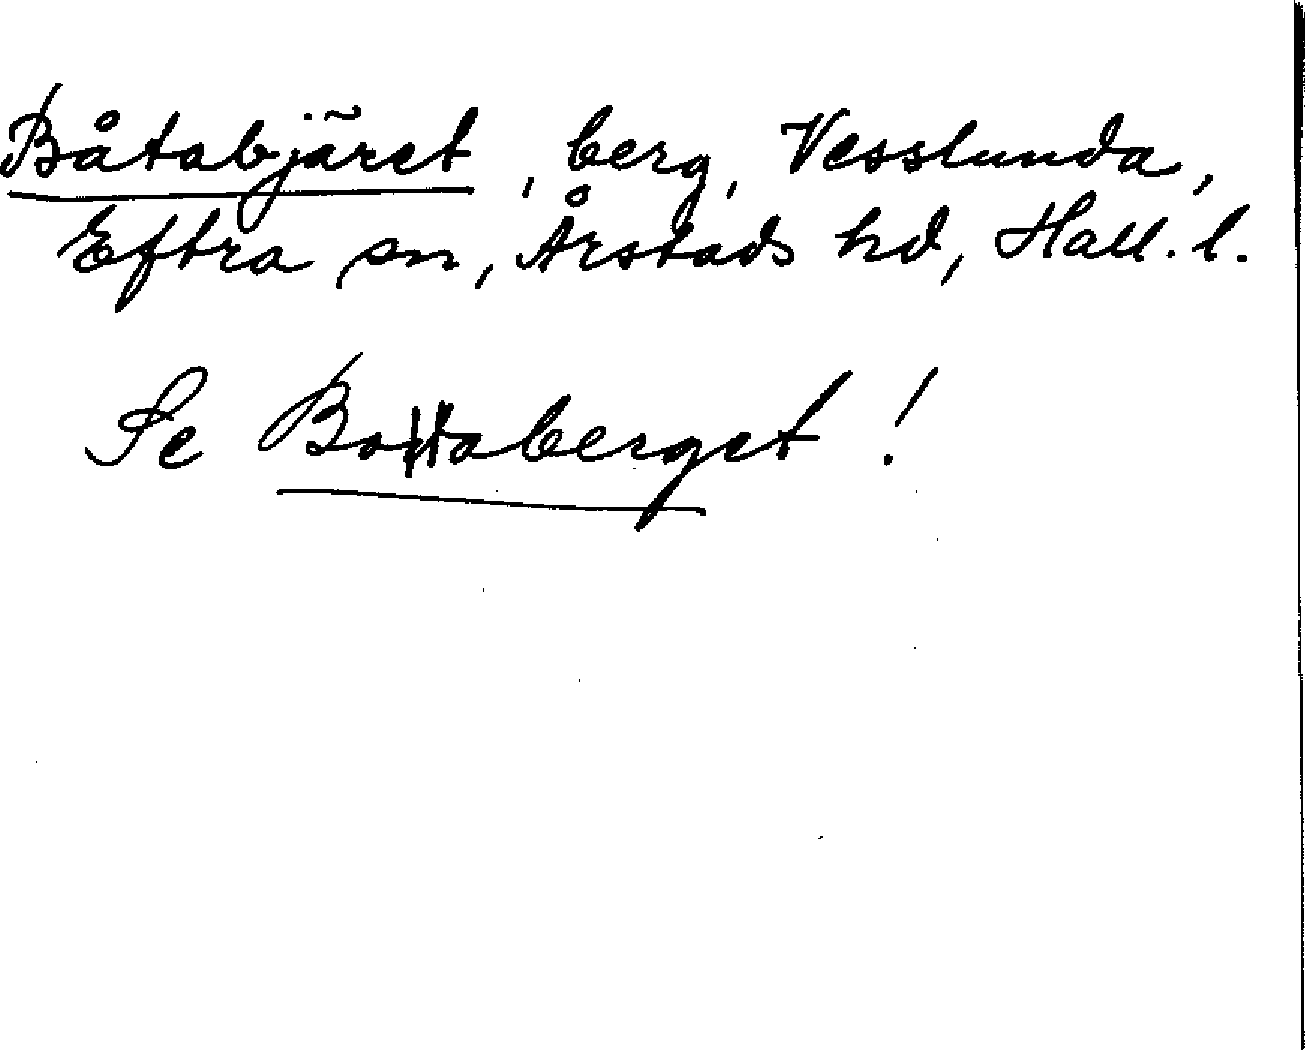 Båtabjäret, berg, Vesslunda,
Eftra sn, Årstads hd, Hall. l.
Se Bottaberget!